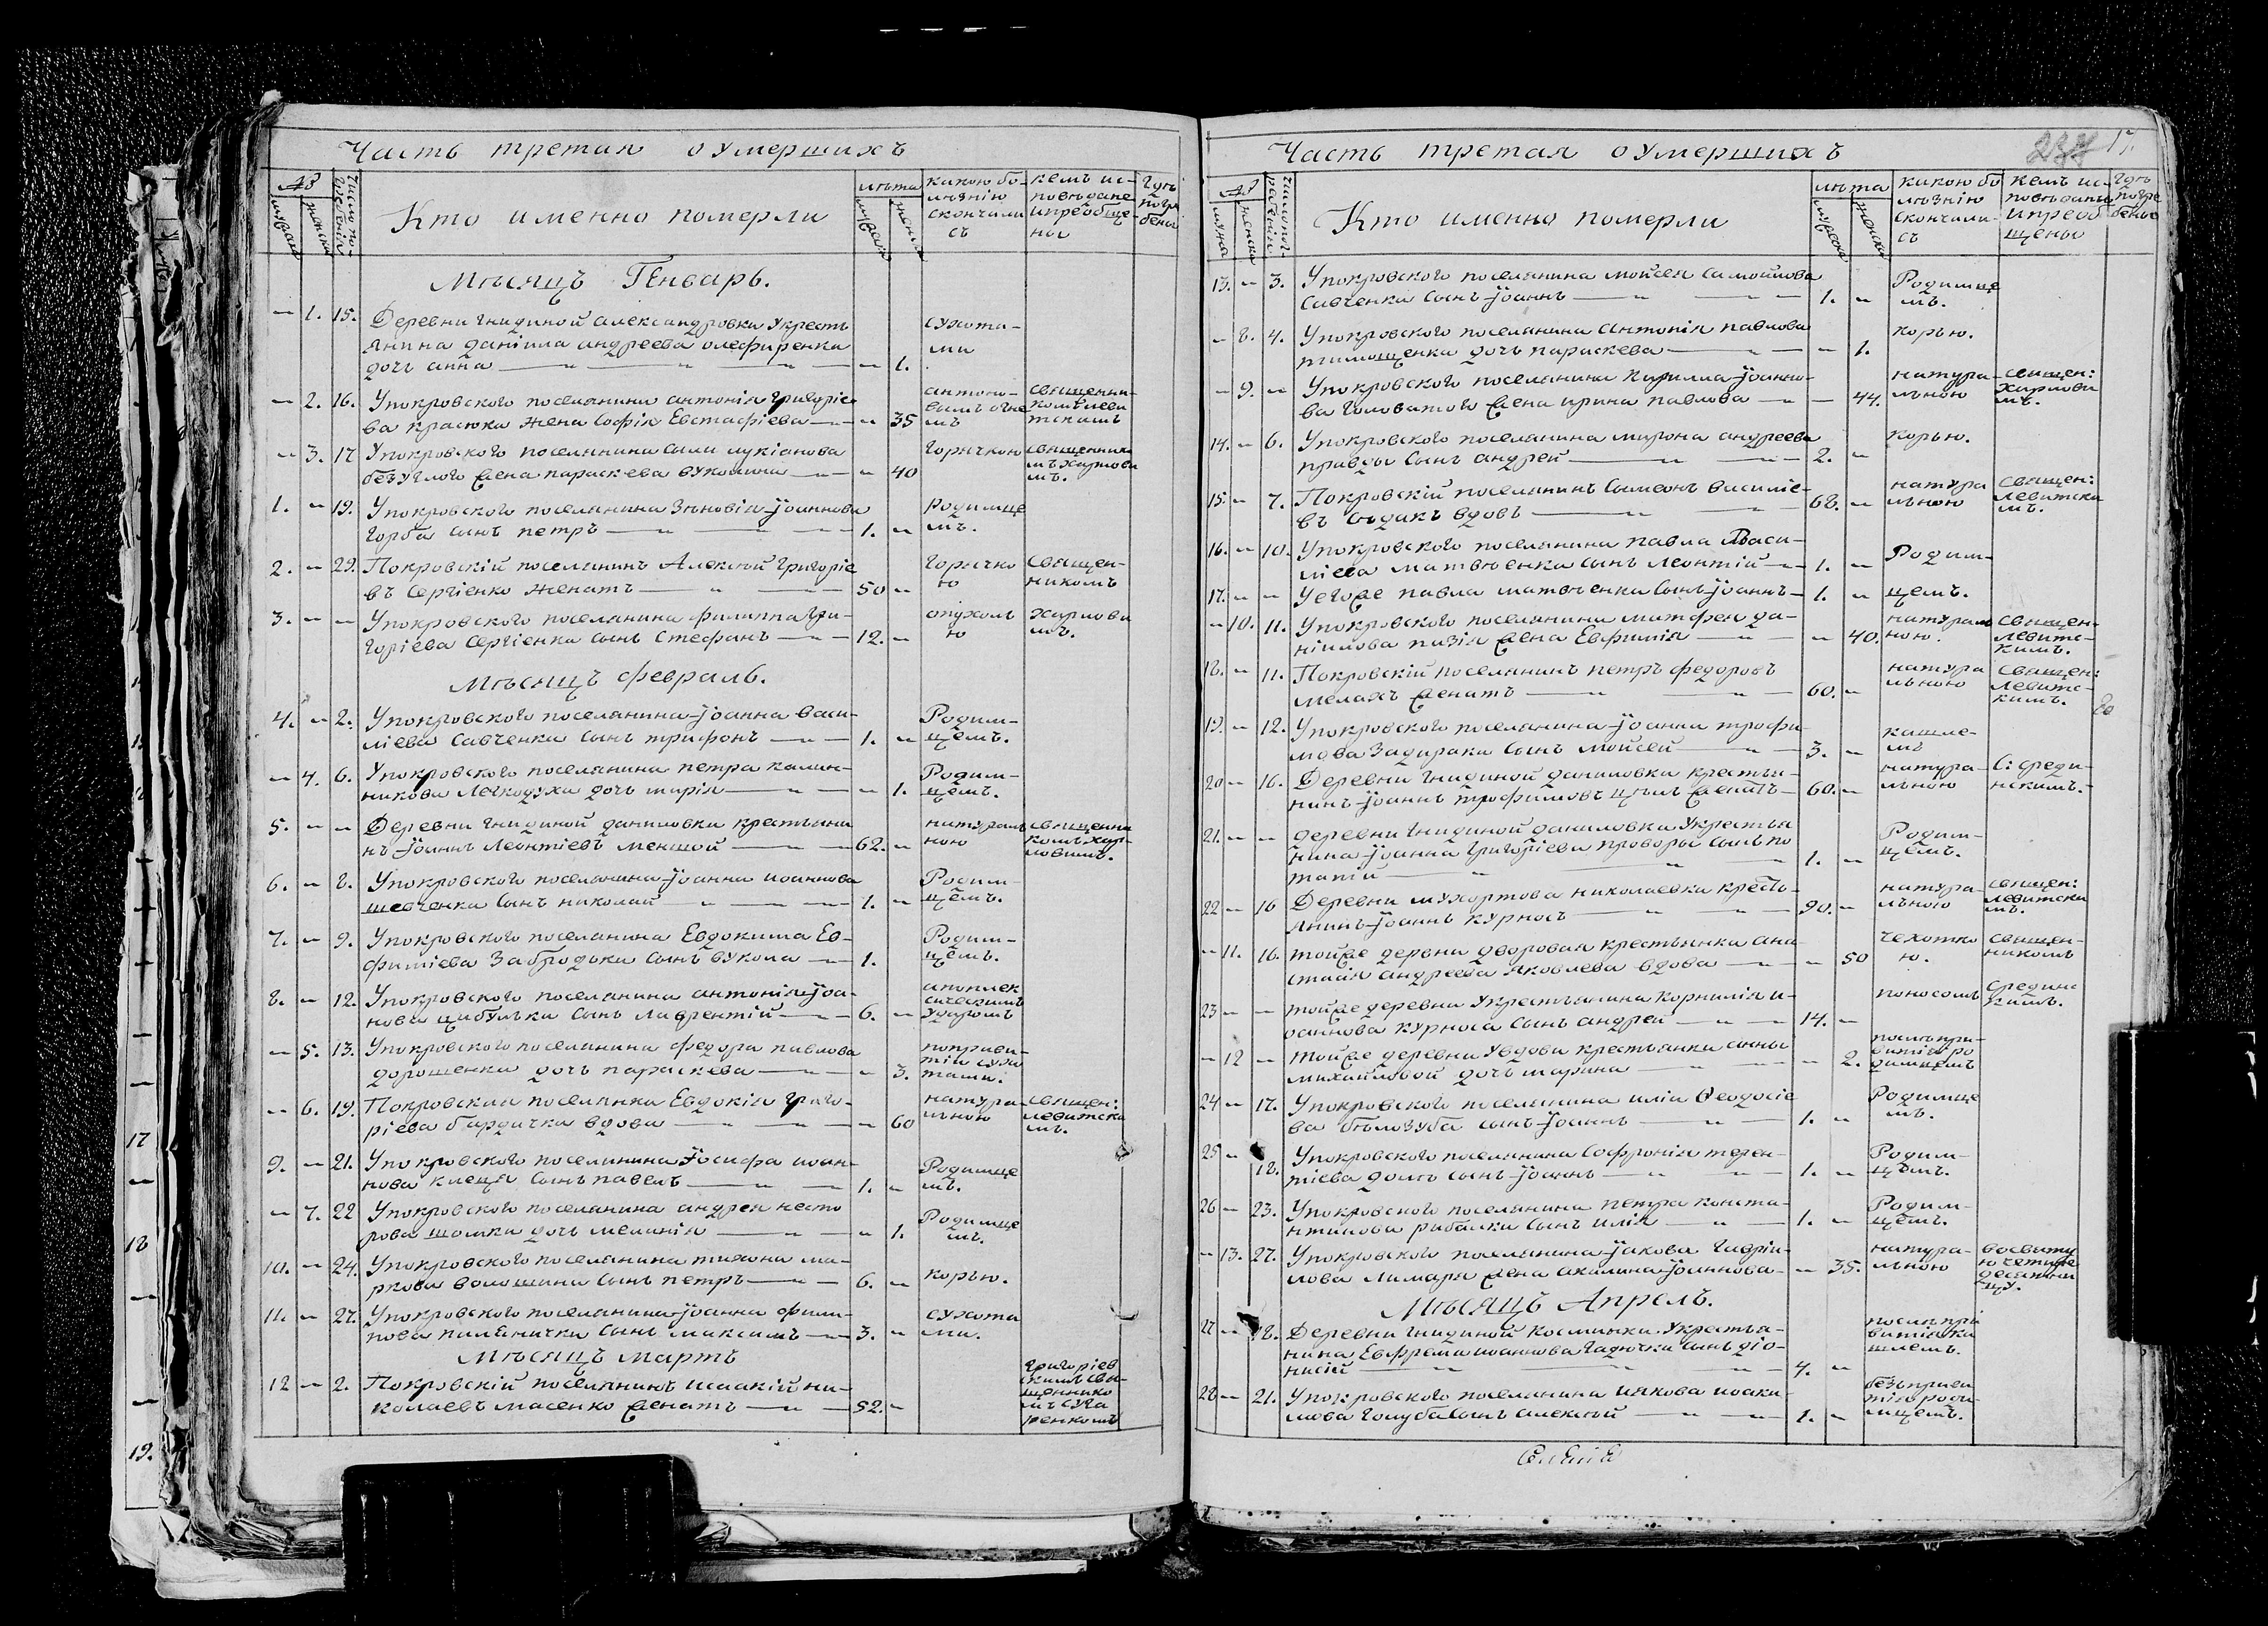 Часть третая оумершихъ
№
мужеска
женска
число по-
гребенія
Кто именно померли
лѣта
мужеск
женска
какою бо-
лѣзнію
скончали
сь
кемъ ис-
повѣдане
ипреобще-
ны
Гдѣ
погре
бены
Мѣсяцъ Генварь.
— 1. 15. Деревни Гнидиной Александровки укресть
янина Даніила Андреева Олефиренка
дочь анна — — 1.
сухота-
ми
— 2. 16. Упокровского поселянина антонія григоріе
ва красюка жена Софія Евстафіева — — 35
антоно-
вымъ огне
мъ
священни-
комъ Леви
тскимъ
— 3. 17 Упокровского поселянина Савы лукіанова
безуглого жена параскева вуколина — — 40
Горячкою
священнико
мъ Харлови
мъ.
1. — 19. Упокровского поселянина Зѣновія Іоаннова
Горба сынъ петръ — 1. —
Родимце
мъ.
2. — 29. Покровскій поселянинъ Алексѣй Григоріе
въ Сергіенко женатъ — 50 —
Горячко
ю
Священ-
никомъ
3. — — Упокровского поселянина филиппа Гри-
горіева Сергіенка сынъ Стефанъ — 12. —
опухоль
ю
Харлови
мъ.
Мѣсяцъ февраль.
4. — 2. Упокровского поселянина Іоанна Васи-
ліева Савченка сынъ трифонъ — 1. —
Родим-
цемъ.
— 4. 6. Упокровского поселянина петра калин-
никова Легкодуха дочь марія — — 1.
Родим-
цемъ.
5. — — Деревни Гнидиной даниловки крестьяни
нъ Іоаннъ Леонтіевъ меншой — 62. —
натураль
ною
священни
комъ Хар-
ловимъ.
6. — 8. Упокровского поселянина Іоанна иоаннова
шевченка сынъ николай — 1. —
Родим-
цемъ.
7. — 9. Упокровского поселянина Евдокима Ев-
фиміева Забродьки сынъ вукола — 1.
Родим-
цемъ.
8. — 12. Упокровского поселянина антонія Іоа-
нова цибульки сынъ Лаврентій — 6. —
апоплек
сическимъ
ударомъ
— 5. 13. Упокровского поселянина федора павлова
дорошенка дочь параскева — — 3.
поприви-
тіи сухо
тами.
— 6. 19. Покровская поселянка Евдокія григо-
ріева бардичка вдова — — 60
натура-
льною
священ:
левитски
мъ.
9. — 21. Упокровского поселянина Іосифа иоан-
нова клеща сынъ павелъ — 1. —
Родимце
мъ.
— 7. 22 Упокровского поселянина андрея несто
рова шомки дочь меланію — — 1.
Родимце
мъ.
10. — 24. Упокровского поселянина тихона ма-
ркова волошина сынъ петръ — 6. —
корью.
11. — 27. Упокровского поселянина Іоанна фили-
пова пилянички сынъ максимъ — 3. —
сухота
ми.
Мѣсяцъ мартъ
12 — 2. Покровскій поселянинъ исаакій ни-
колаевъ масенко женатъ — 52. —
григоріев
скимъ свя-
щеннико
мъ суга
ренкомъ
Часть третая оумершихъ
237 17.
№
мужеска
женска
число пог-
ребенія
Кто именно померли
лѣта
мужеска
женска
какою бо
лѣзнію
скончали-
сь
Кемъ ис-
повѣданы
ипреоб
щены
Гдѣ
погре
бены
13. — 3. Упокровского поселянина мойсея самойлова
савченка сынъ Іоаннъ — 1. —
Родимце
мъ.
— 8. 4. Упокровского поселянина антонія павлова
тимощенка дочь параскева — — 1.
корью.
— 9. — Упокровского поселянина Кирилла Іоанно-
ва Головатого жена ирина павлова — — 44.
натура-
льною
священ:
Харлови
мъ.
14. — 6. Упокровского поселянина мирона андреева
правды сынъ андрей — 2. —
корью.
15. — 7. Покровскій поселянинъ Сымеонъ василіе-
въ Сѣдакъ вдовъ — 68. —
натура
льною
священ:
левитски
мъ.
16. — 10. Упокровского поселянина павла Васи-
ліева матвѣенка сынъ леонтій — 1. —
Родим-
17. — — Уегоже павла матвѣенка сынъ Іоаннъ — 1. —
цемъ.
— 10. 11. Упокровского поселянина митфея да-
ніилова пазія жена Евфимія — — 40.
натураль
ною.
священ-
левитс-
кимъ.
18. — 11. Покровскій поселянинъ петръ федоровъ
мелахъ женатъ — 60. —
натура
льною
священ:
левитс-
кимъ.
19. — 12. Упокровского поселянина Іоанна трофи-
мова Задираки сынъ мойсей — 3. —
кашле-
мъ
20 — 16. Деревни Гнидиной даниловки крестья-
нинъ Іоаннъ трофимовъ женатъ — 60. —
натура-
льною
С: среди-
нскимъ.
21. — — деревни Гнидиной даниловки Укрестья
нина Іоанна Григоріева проворы сынъ по
тапій — 1. —
Родим-
цемъ.
22 — 16 Деревни мухортова николаевки кресть-
янинъ Іоаннъ курносъ — 90. —
натура-
льною
священ:
левитски
мъ.
— 11. 16. тойже дерѣвни дворовая крестьянка ана
стасія андреева яковлева вдова — — 50
чехотко
ю.
священ-
никомъ
23 — — тойже деревни Укрестьянина корнилія и-
оаннова курноса сынъ андрей — 14. —
поносомъ
средине
кимъ.
— 12 — тойже деревни Увдови крестьянки анны
михайловой дочь марина — — 2.
послѣпри-
витія ро
димцемъ
24 — 17. Упокровского поселянина иліи Ѳеодосіе
ва бѣлозуба сынъ Іоаннъ — 1. —
Родимце
мъ.
25 — 18. Упокровского поселянина Софронія терен-
тіева долгъ сынъ Іоаннъ — 1. —
Родим-
цемъ.
26 — 23. Упокровского поселянина петра конста-
нтинова рибалки сынъ илія — 1. —
Родим-
цемъ.
— 13. 27. Упокровского поселянина Іакова гаврии-
лова Лимаря жена акилина Іоаннова — — 35.
натура-
льною
восвяту
ю четыре
десятни
цу.
Мѣсяцъ Апрель.
27 — 18. Деревни гнидиной космынки. Укрестья-
нина Евфрема иоаннова гадючки сынъ діо-
нисій — 4. —
послѣпри
витіяка
шлемъ.
28 — 21. Упокровского поселянина иякова иоаки-
мова голуба сынъ алексѣй — 1. —
безъприви
тія роди
мцемъ.